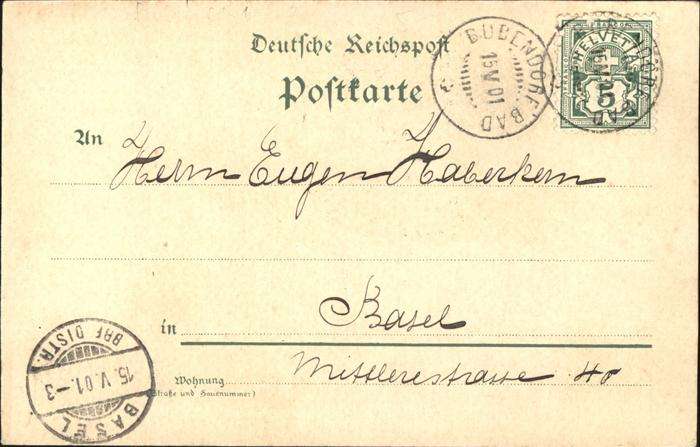 Deutsche Reichspost
Postkarte
BUBENDORF BAD
15 V 01
FRANCO
HELVETIA
5
An Herrn Eugen Haberkern
in Basel
Wohnung Mittlerestrasse 40
(Straße und Hausnummer)
BASEL
BRF DISTR.
15. V. 01.-3